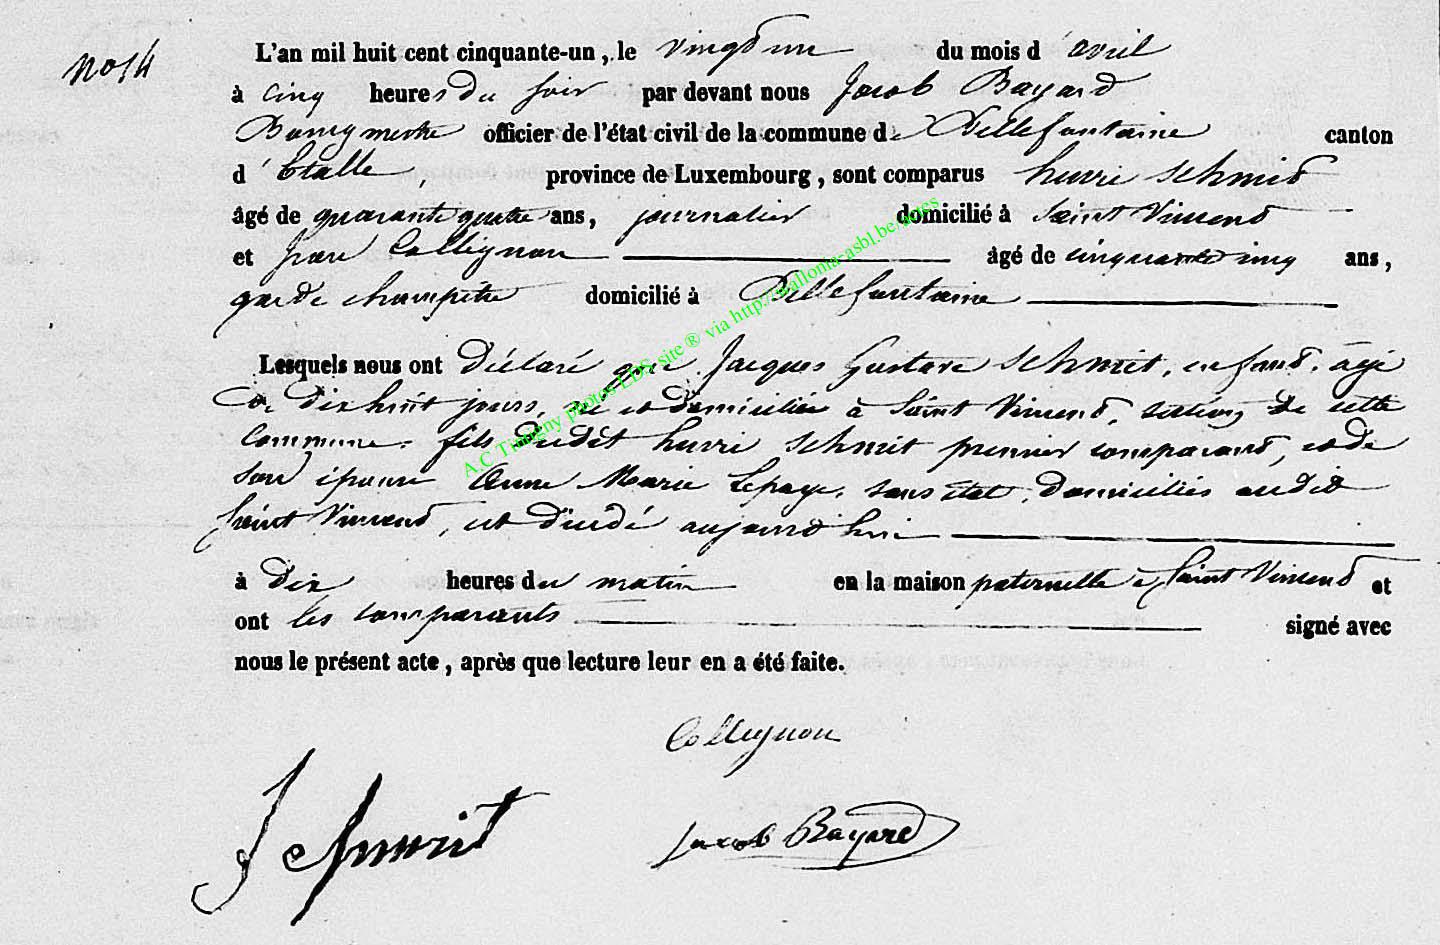 No 14
L'an mil huit cent cinquante-un, le vingt un du mois d'avril
à cinq heures du soir par devant nous Jacob Bayard
Bourgmestre officier de l'état civil de la commune de Bellefontaine canton
d'Etalle, province de Luxembourg, sont comparus henri Schmit
âgé de quarante quatre ans, journalier domicilié à Saint Vincent
et Jean Collignon âgé de cinquante cinq ans,
garde champêtre domicilié à Bellefontaine
Lesquels nous ont déclaré que Jacques Gustave Schmit, enfant, âgé
de dix huit jours, né et domicilié à Saint Vincent, section de cette
commune, fils dudit henri Schmit premier comparant, et de
son épouse Anne Marie Lepage, sans état, domiciliés audit
Saint Vincent, est décédé aujourd'hui
à dix heures du matin en la maison paternelle à Saint Vincent et
ont les comparants signé avec
nous le présent acte, après que lecture leur en a été faite.
Collignon
Schmit
Jacob Bayard
A.C Tintigny photos EDS site ® via http://wallonia-asbl.be/actes